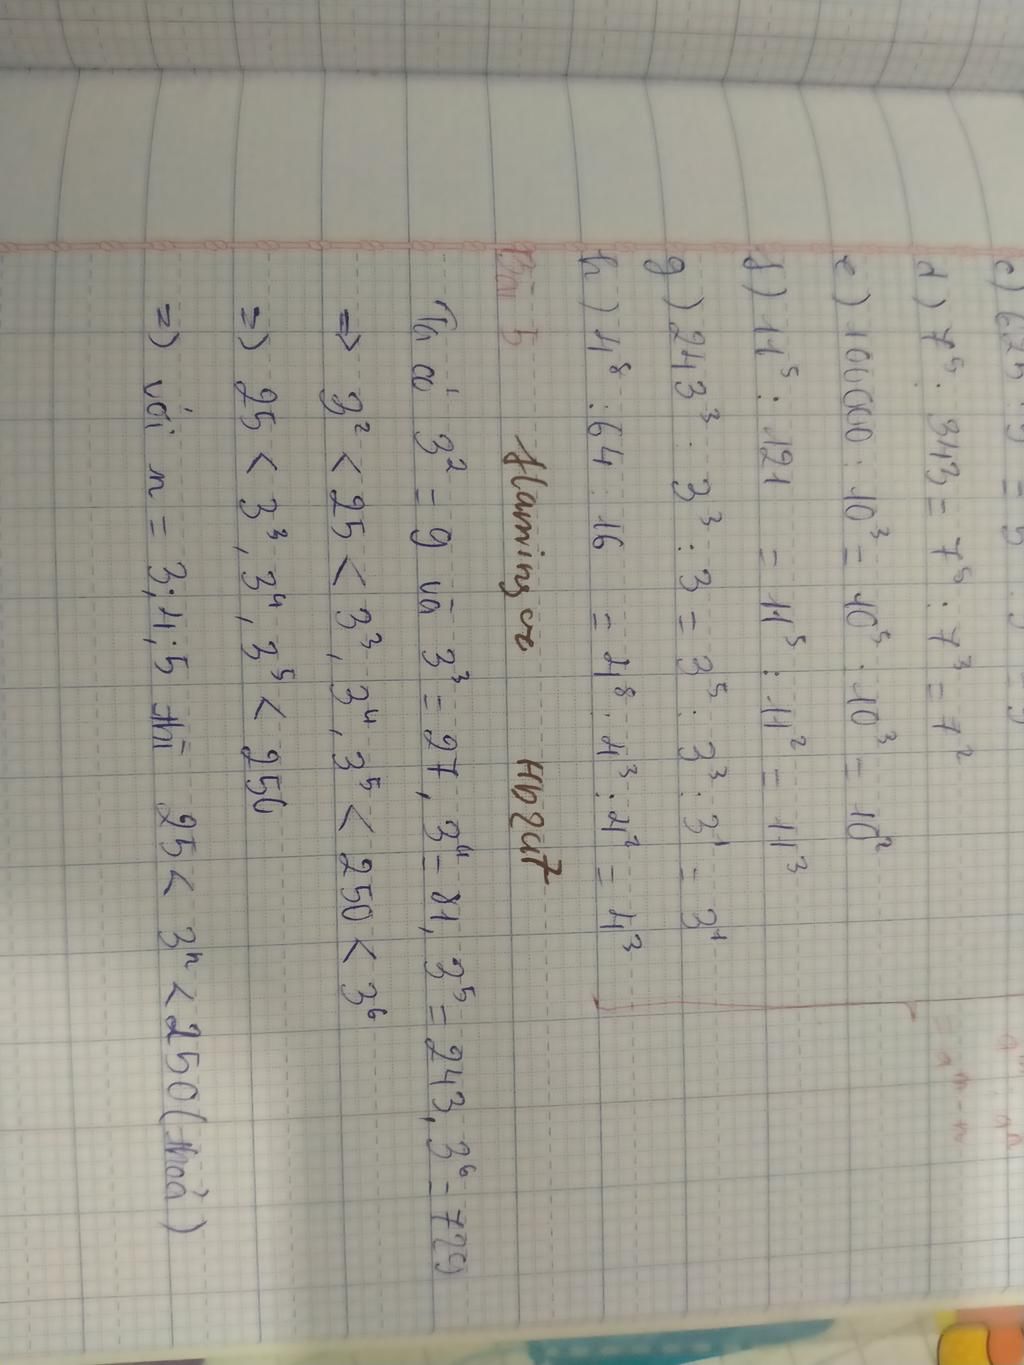 d) 7⁵ : 343 = 7⁵ : 7³ = 7²
e) 100000 : 10³ = 10⁵ : 10³ = 10²
f) 11⁵ : 121 = 11⁵ : 11² = 11³
g) 243³ : 3³ : 3 = 3⁵ : 3³ : 3¹ = 3¹
h) 4⁸ : 64 : 16 = 4⁸ : 4³ : 4² = 4³
= aᵐ⁻ⁿ
Bài 5
Ta có 3² = 9 và 3³ = 27, 3⁴ = 81, 3⁵ = 243, 3⁶ = 729
=> 3² < 25 < 3³, 3⁴, 3⁵ < 250 < 3⁶
=> 25 < 3³, 3⁴, 3⁵ < 250
=> với n = 3;4;5 thì 25 < 3ⁿ < 250 (thoả)